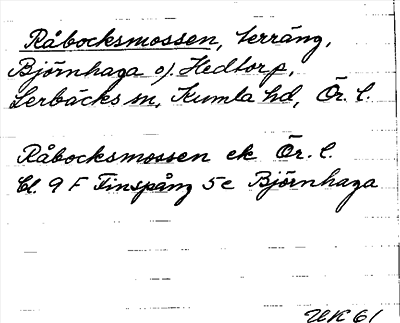 Råbocksmossen, terräng,
Björnhaga o). Hedtorp,
Lerbäcks sn, Kumla hd, Ör. l.
Råbocksmossen ek Ör. l.
Bl. 9 F Finspång 5 c Björnhaga
UK 61